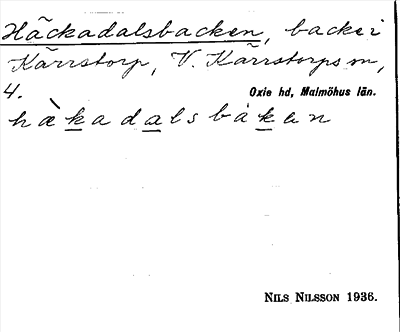 Häckadalsbacken, backe i
Kärrstorp, V. Kärrstorps sn,
4. Oxie hd, Malmöhus län.
hæ̀kadalsbákan
NILS NILSSON 1936.